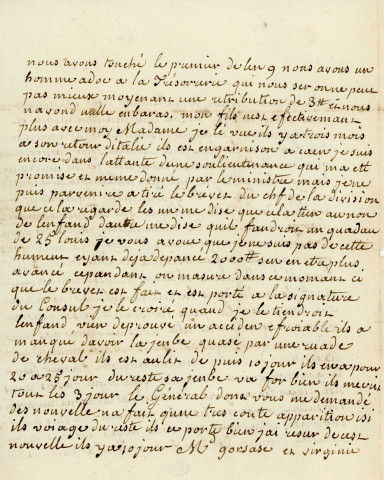 nous avons touché le premier de l'en 9 nous avons un
homme adoc a la Trésorerie qui nous ser on ne peut
pas mieux moyenant une retribution de 3# et nous
navond nulle enbaras. mon fils nest efectivement
plus avec moy Madame je le vue ils ya trois mois
a son retour ditalie ils est en garnison a caen je suis
encore dans lattante dune soulieutenance qui ma ett
promise et meme donné par le ministre mais je ne
puis parvenire a tiré le brevet du chf de la division
que cela regarde les un me dise que cela tien au non
de lenfand dautre me dise quil faudroit un quadau
de 25 louis je vous avoue que je ne suis pas de cette
humeur eyant deja depancé 2000# sen en etre plus
avancé cependant on masure dans ce momant ci
que le brevet est fait et est porté a la signature
du Consul je le croiré quand je le tiendroit
lenfand vien deprouvé un acciden efroiable ils a
manqué davoir la jenbe quasé par une ruade
de cheval ils est au lit de puis 10 jour ils en a pour
20 a 25 jour du reste sa jenbe va for bien ils mecrit
tout les 3 jour le Général dont vous me demandé
des nouvelle na fait quune tres courte apparition isi
ils voiage du reste ils ce porte bien jai resu de cest
nouvelle ils ya 10 jour Mr gorsase et virginie